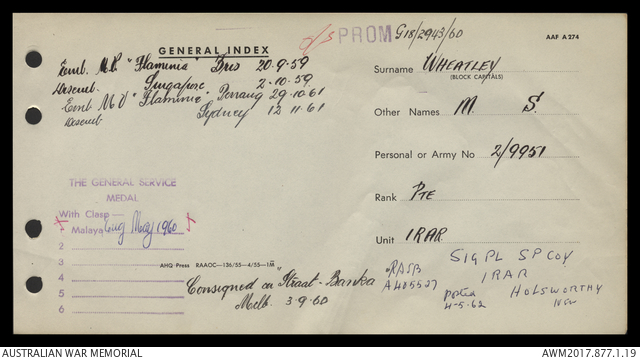 O/S PROM G18/2943/60
AAF A 274
GENERAL INDEX
Emb. M.V "Flaminia" Bris 20.9.59
Disemb. Singapore 2.10.59
Emb M V "Flaminia" Penang 29.10.61
Disemb Sydney 12 11.61
Surname WHEATLEY
(BLOCK CAPITALS)
Other Names M. S.
Personal or Army No 2/9951
Rank PTE
Unit 1RAR.
THE GENERAL SERVICE
MEDAL
With Clasp—
1 Malaya May 1960
2
3
4
5
6
AHQ Press RAAOC—136/55—4/55—1M
Consigned on Straat-Banka
Melb. 3.9.60
RASB
A405527
SIG PL SP COY
1RAR
HOLSWORTHY
NSW
4-5-62
AUSTRALIAN WAR MEMORIAL
AWM2017.877.1.19